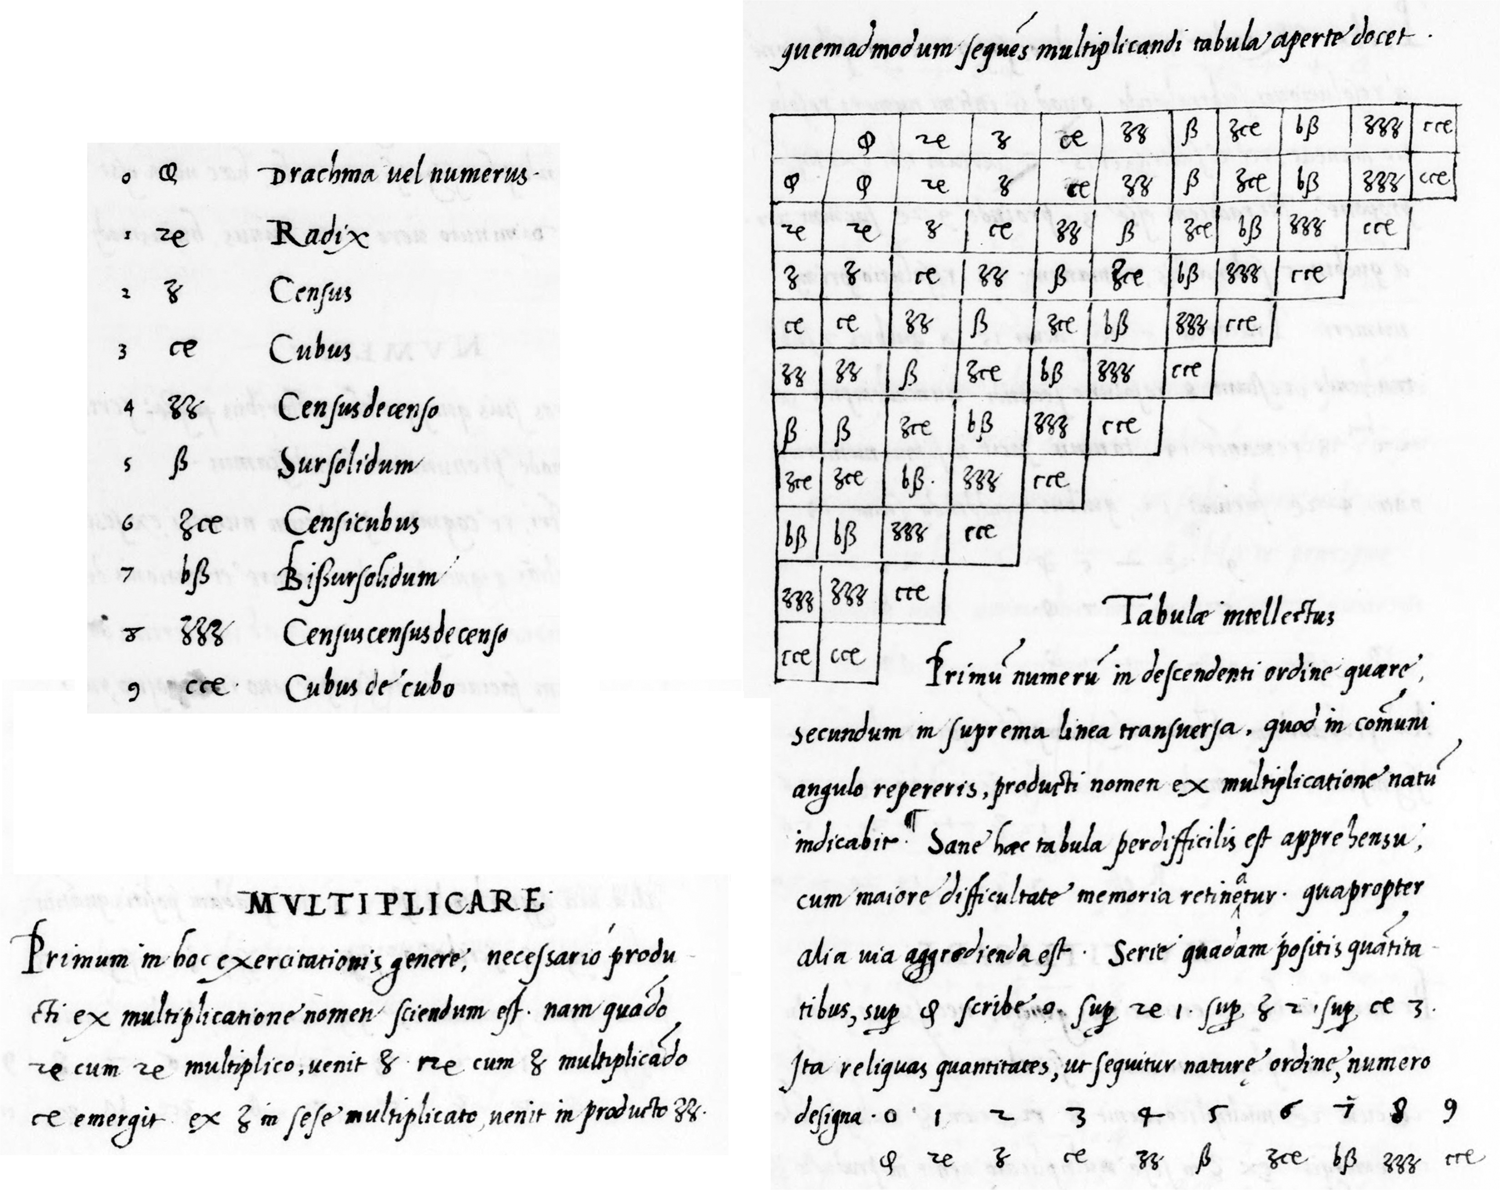 0 φ Drachma uel numerus.
1 ꝛe Radix
2 ʒ Census
3 ce Cubus
4 ʒʒ Census de censo
5 ß Sursolidum
6 ʒce Censicubus
7 bß Bißursolidum
8 ʒʒʒ Census census de censo
9 cce Cubus de cubo
MVLTIPLICARE
Primum in hoc exercitationis genere, necessario produ
cti ex multiplicatione nomen sciendum est. nam quādo
ꝛe cum ꝛe multiplico, uenit ʒ. ꝛe cum ʒ multiplicādo
ce emergit. ex ʒ in sese multiplicato, uenit in producto ʒʒ.
quemadmodum sequēs multiplicandi tabula aperte docet.
φ ꝛe ʒ ce ʒʒ ß ʒce bß ʒʒʒ cce
φ φ ꝛe ʒ ce ʒʒ ß ʒce bß ʒʒʒ cce
ꝛe ꝛe ʒ ce ʒʒ ß ʒce bß ʒʒʒ cce
ʒ ʒ ce ʒʒ ß ʒce bß ʒʒʒ cce
ce ce ʒʒ ß ʒce bß ʒʒʒ cce
ʒʒ ʒʒ ß ʒce bß ʒʒʒ cce
ß ß ʒce bß ʒʒʒ cce
ʒce ʒce bß. ʒʒʒ cce
bß bß ʒʒʒ cce
ʒʒʒ ʒʒʒ cce
cce cce
Tabulæ intellectus
Primū numerū in descendenti ordine quære,
secundum in suprema linea transuersa. quod in cōmuni
angulo repereris, producti nomen ex multiplicatione natū
indicabit. ¶ Sane hæc tabula perdifficilis est apprehensu,
cum maiore difficultate memoria retineatur. quapropter
alia uia aggredienda est. Serie quadam positis quātita
tibus, sup φ scribe 0. sup ꝛe 1. sup ʒ 2. sup ce 3.
Ita reliquas quantitates, ut sequitur naturę ordine, numero
designa. 0 1 2 3 4 5 6 7 8 9
φ ꝛe ʒ ce ʒʒ ß ʒce bß ʒʒʒ cce